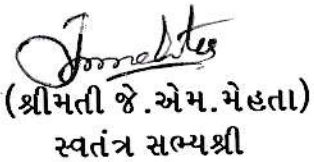 (શ્રીમતી જે.એમ.મેહતા)
સ્વતંત્ર સભ્યશ્રી